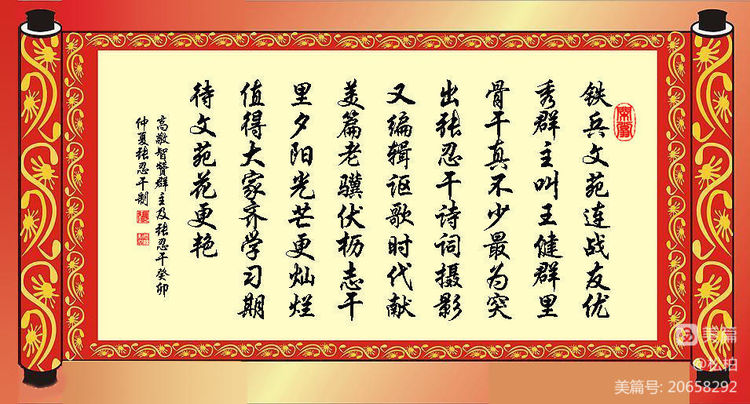 铁兵文苑连战友优
秀群主叫王健群里
骨干真不少最为突
出张忍干诗词摄影
又编辑讴歌时代献
美篇老骥伏枥志千
里夕阳光芒更灿烂
值得大家齐学习期
待文苑花更艳
高敬智赞群主及张忍干癸卯
仲夏张忍干制
美篇
@松柏
美篇号: 20658292